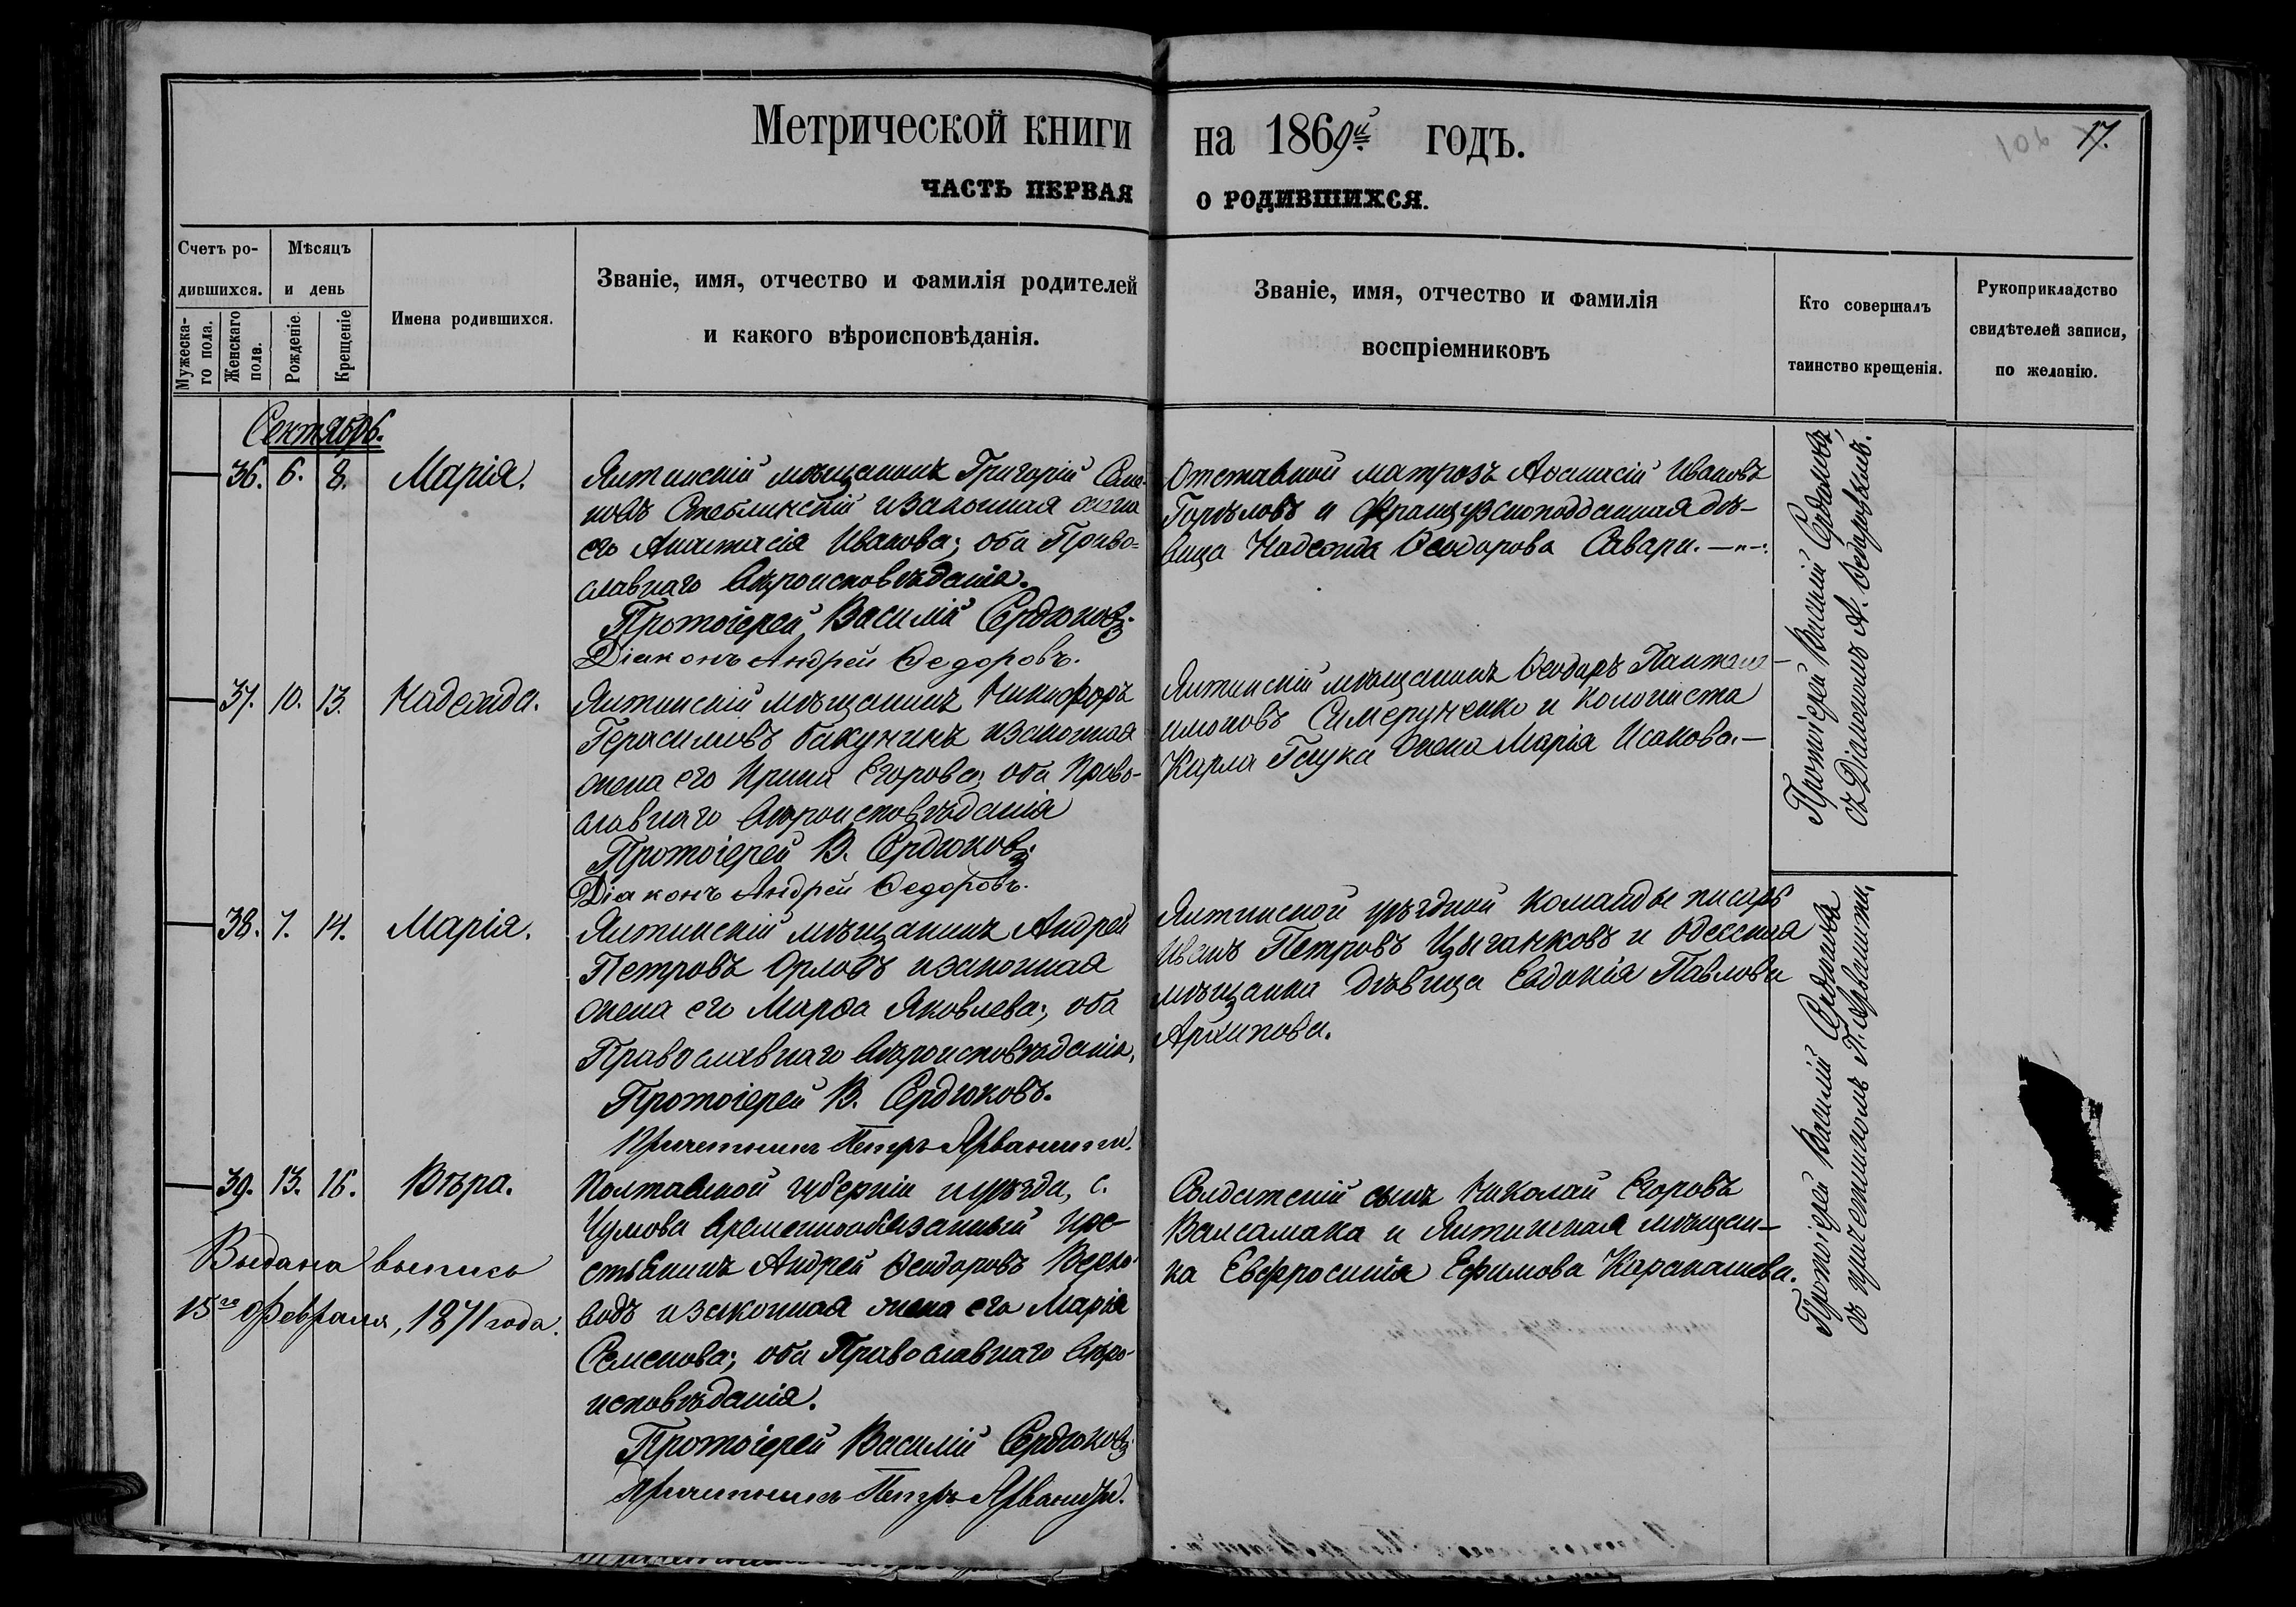 Метрической книги на 1869й годъ.
17.
ЧАСТЬ ПЕРВАЯ О РОДИВШИХСЯ.
Счетъ ро-
дившихся.
Мужеска-
го пола.
Женскаго
пола.
Мѣсяцъ
и день
Рожденіе.
Крещеніе
Имена родившихся.
Званіе, имя, отчество и фамилія родителей
и какого вѣроисповѣданія.
Званіе, имя, отчество и фамилія
воспріемниковъ
Кто совершалъ
таинство крещенія.
Рукоприкладство
свидѣтелей записи,
по желанію.
Сентябрь.
36. 6. 8. Марія.
Ялтинскій мѣщанинъ Григорій
новъ Стеблинскій и законная жена
его Анастасія Иванова; оба Право-
славнаго вѣроисповѣданія.
Протоіерей Василій Сердюковъ.
Діаконъ Андрей Ѳедоровъ.
Отставной матрозъ Аѳанасій Ивановъ
Горѣловъ и Французскоподданная дѣ-
вица Надежда Ѳеодорова Савари.
37. 10. 13. Надежда.
Ялтинскій мѣщанинъ Никифоръ
Герасимовъ Бакунинъ и законная
жена его Ирина Егорова; оба Право-
славнаго вѣроисповѣданія
Протоіерей В. Сердюковъ.
Діаконъ Андрей Ѳедоровъ.
Ялтинскій мѣщанинъ Ѳеодоръ Пантеле-
имоновъ Симеруненко и колониста
Карла Гаука жена Марія Исакова.
Протоіерей Василій Сердюковъ,
съ Діакономъ А. Ѳедоровымъ.
38. 7. 14. Марія.
Ялтинскій мѣщанинъ Андрей
Петровъ Орловъ и законная
жена его Марѳа Яковлева; оба
Православнаго вѣроисповѣданія,
Протоіерей В. Сердюковъ.
Причетникъ Петръ Арванити.
Ялтинской уѣздной команды писарь
Иванъ Петровъ Цыганковъ и одесская
мѣщанка дѣвица Евдокія Павлова
Архипова.
39. 13. 16. Вѣра.
Полтавской губерніи и уѣзда, с.
Чумова временнообязанный кре-
стьянинъ Андрей Ѳеодоровъ Верхо-
водъ и законная жена его Марія
Семенова; оба Православнаго вѣро-
исповѣданія.
Протоіерей Василій Сердюковъ
Причетникъ Петръ Арваниди.
Солдатскій сынъ Николай Егоровъ
Валсамака и Ялтинская мѣщан-
ка Евфросинія Ефимова Каракашева.
Протоіерей Василій Сердюковъ
съ причетникомъ П. Арванити.
Выдана выпись
15го Февраля, 1871 года.